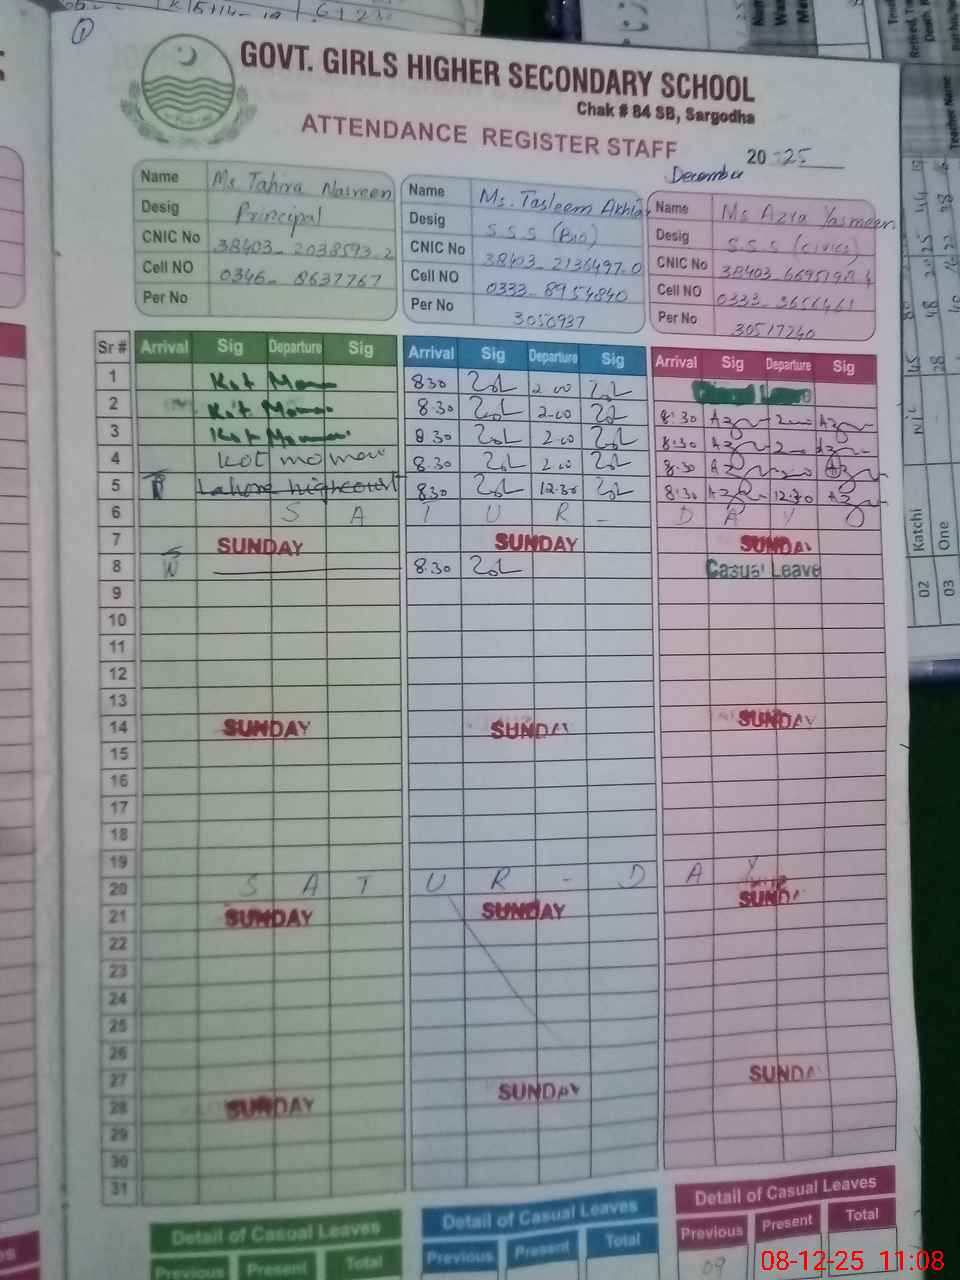 GOVT. GIRLS HIGHER SECONDARY SCHOOL
Chak # 84 SB, Sargodha
ATTENDANCE REGISTER STAFF
20 25
December
Name Ms Tahira Nasreen
Desig Principal
CNIC No 38403-2038593-2
Cell NO 0346-8637767
Per No
Name Ms. Tasleem Akhtar
Desig S.S.S (Bio)
CNIC No 38403-2136497-0
Cell NO 0333-8954840
Per No 3050937
Name Ms Azra Yasmeen
Desig S.S.S (civics)
CNIC No 38403
Cell NO 0333-3656461
Per No 30517240
Sr # Arrival Sig Departure Sig Arrival Sig Departure Sig Arrival Sig Departure Sig
1 Kot Momen 8 30 2.00 Casual Leave
2 Kot Momen 8.30 2.00 8:30
3 Kot Momen 8.30 2.00 8:30
4 Kot momen 8.30 2.00 8.30
5 Lahore highcourt 830 12.30 8:30 12.30
6 S A T U R - D A Y
7 SUNDAY SUNDAY SUNDAY
8 8.30 Casual Leave
9
10
11
12
13
14 SUNDAY SUNDAY SUNDAY
15
16
17
18
19
20 S A T U R - D A Y
21 SUNDAY SUNDAY SUNDAY
22
23
24
25
26
27
28 SUNDAY SUNDAY SUNDAY
29
30
31
Detail of Casual Leaves Detail of Casual Leaves Detail of Casual Leaves
Previous Present Total Previous Present Total Previous Present Total
09
Katchi
One
02
03
08-12-25 11:08